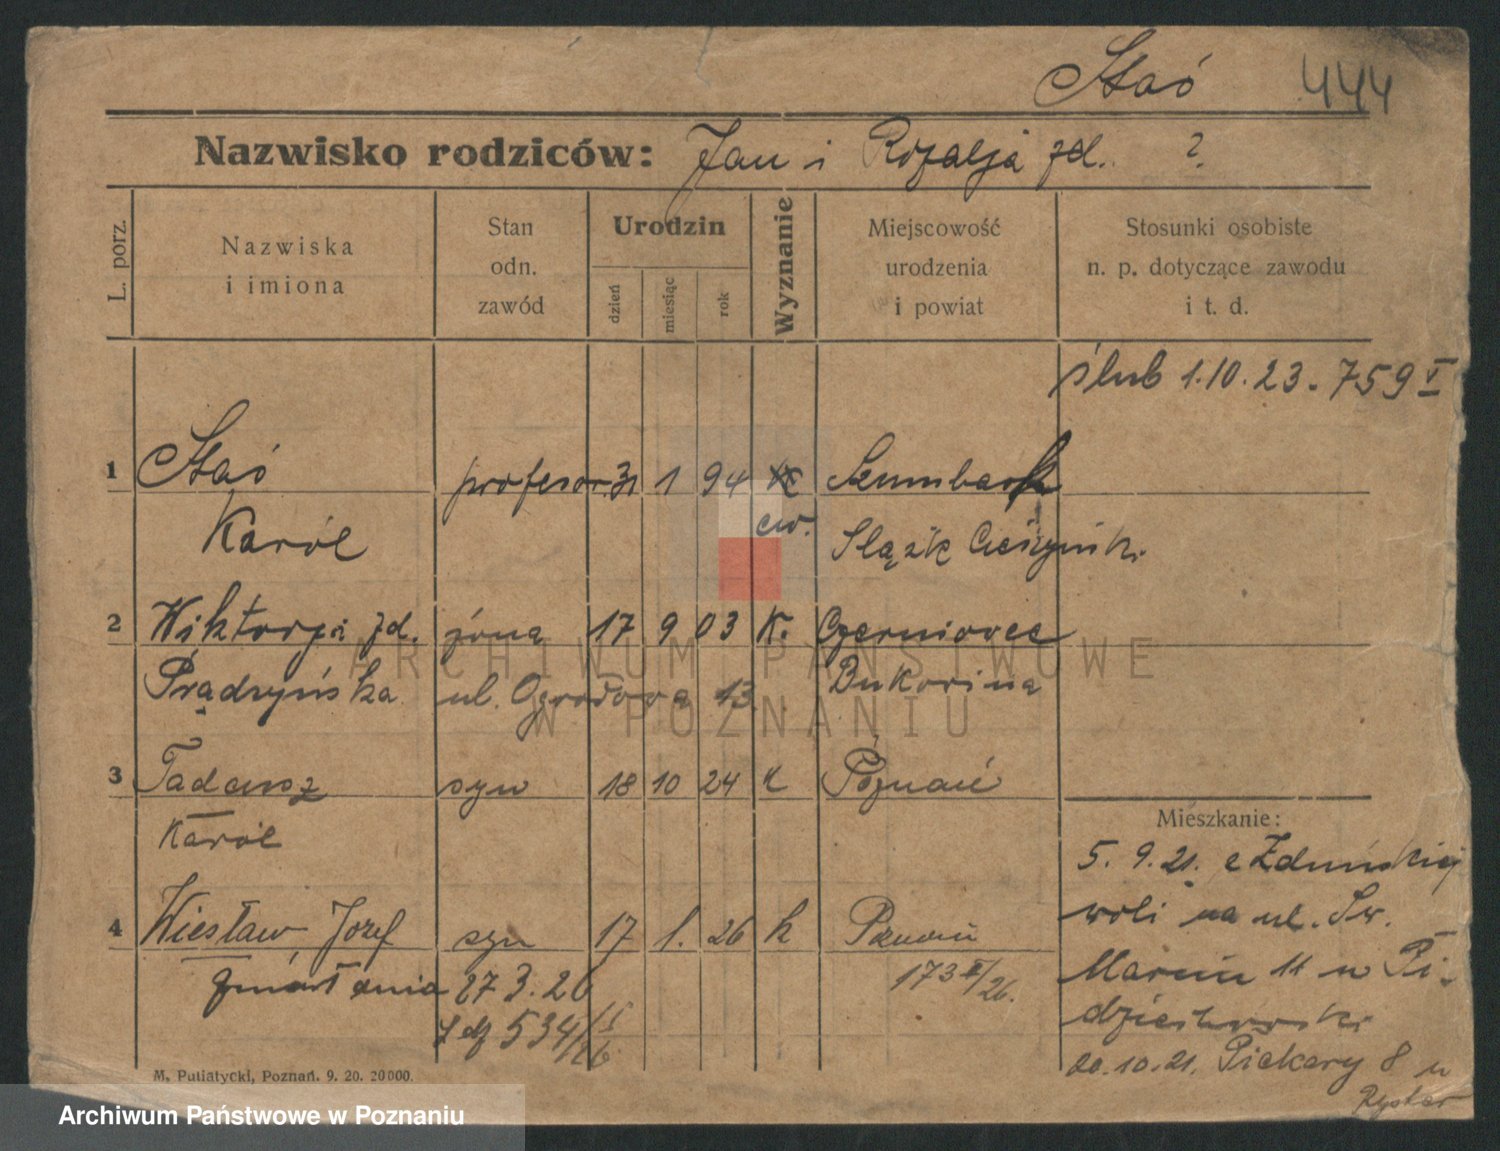 Staś 444
Nazwisko rodziców: Jan i Rozalja zd. ?
L. porz.
Nazwiska i imiona
Stan odn. zawód
Urodzin
dzień miesiąc rok
Wyznanie
Miejscowość urodzenia i powiat
Stosunki osobiste n. p. dotyczące zawodu i t. d.
ślub 1.10.23. 759 V
1 Staś profesor 31 1 94 ew. Szumbark
Karól Śląsk Cieszyński
2 Wiktorja zd. żona 17 9 03 K. Czerniovce
Prądzyńska ul. Ogrodova 13 Bukovina
3 Tadeusz syn 18 10 24 K Poznań
Karól
Mieszkanie:
5. 9. 21. z Zduńskiej
woli na ul. Św.
4 Wiesław Józef syn 17 1. 26 k Poznań
173 II/26.
zmarł dnia 27 3. 26
534/26
Marcin 11 u
20.10.21. Piekary 8 u
M. Putiatycki, Poznań. 9. 20. 20000.
ARCHIWUM PAŃSTWOWE
W POZNANIU
Archiwum Państwowe w Poznaniu